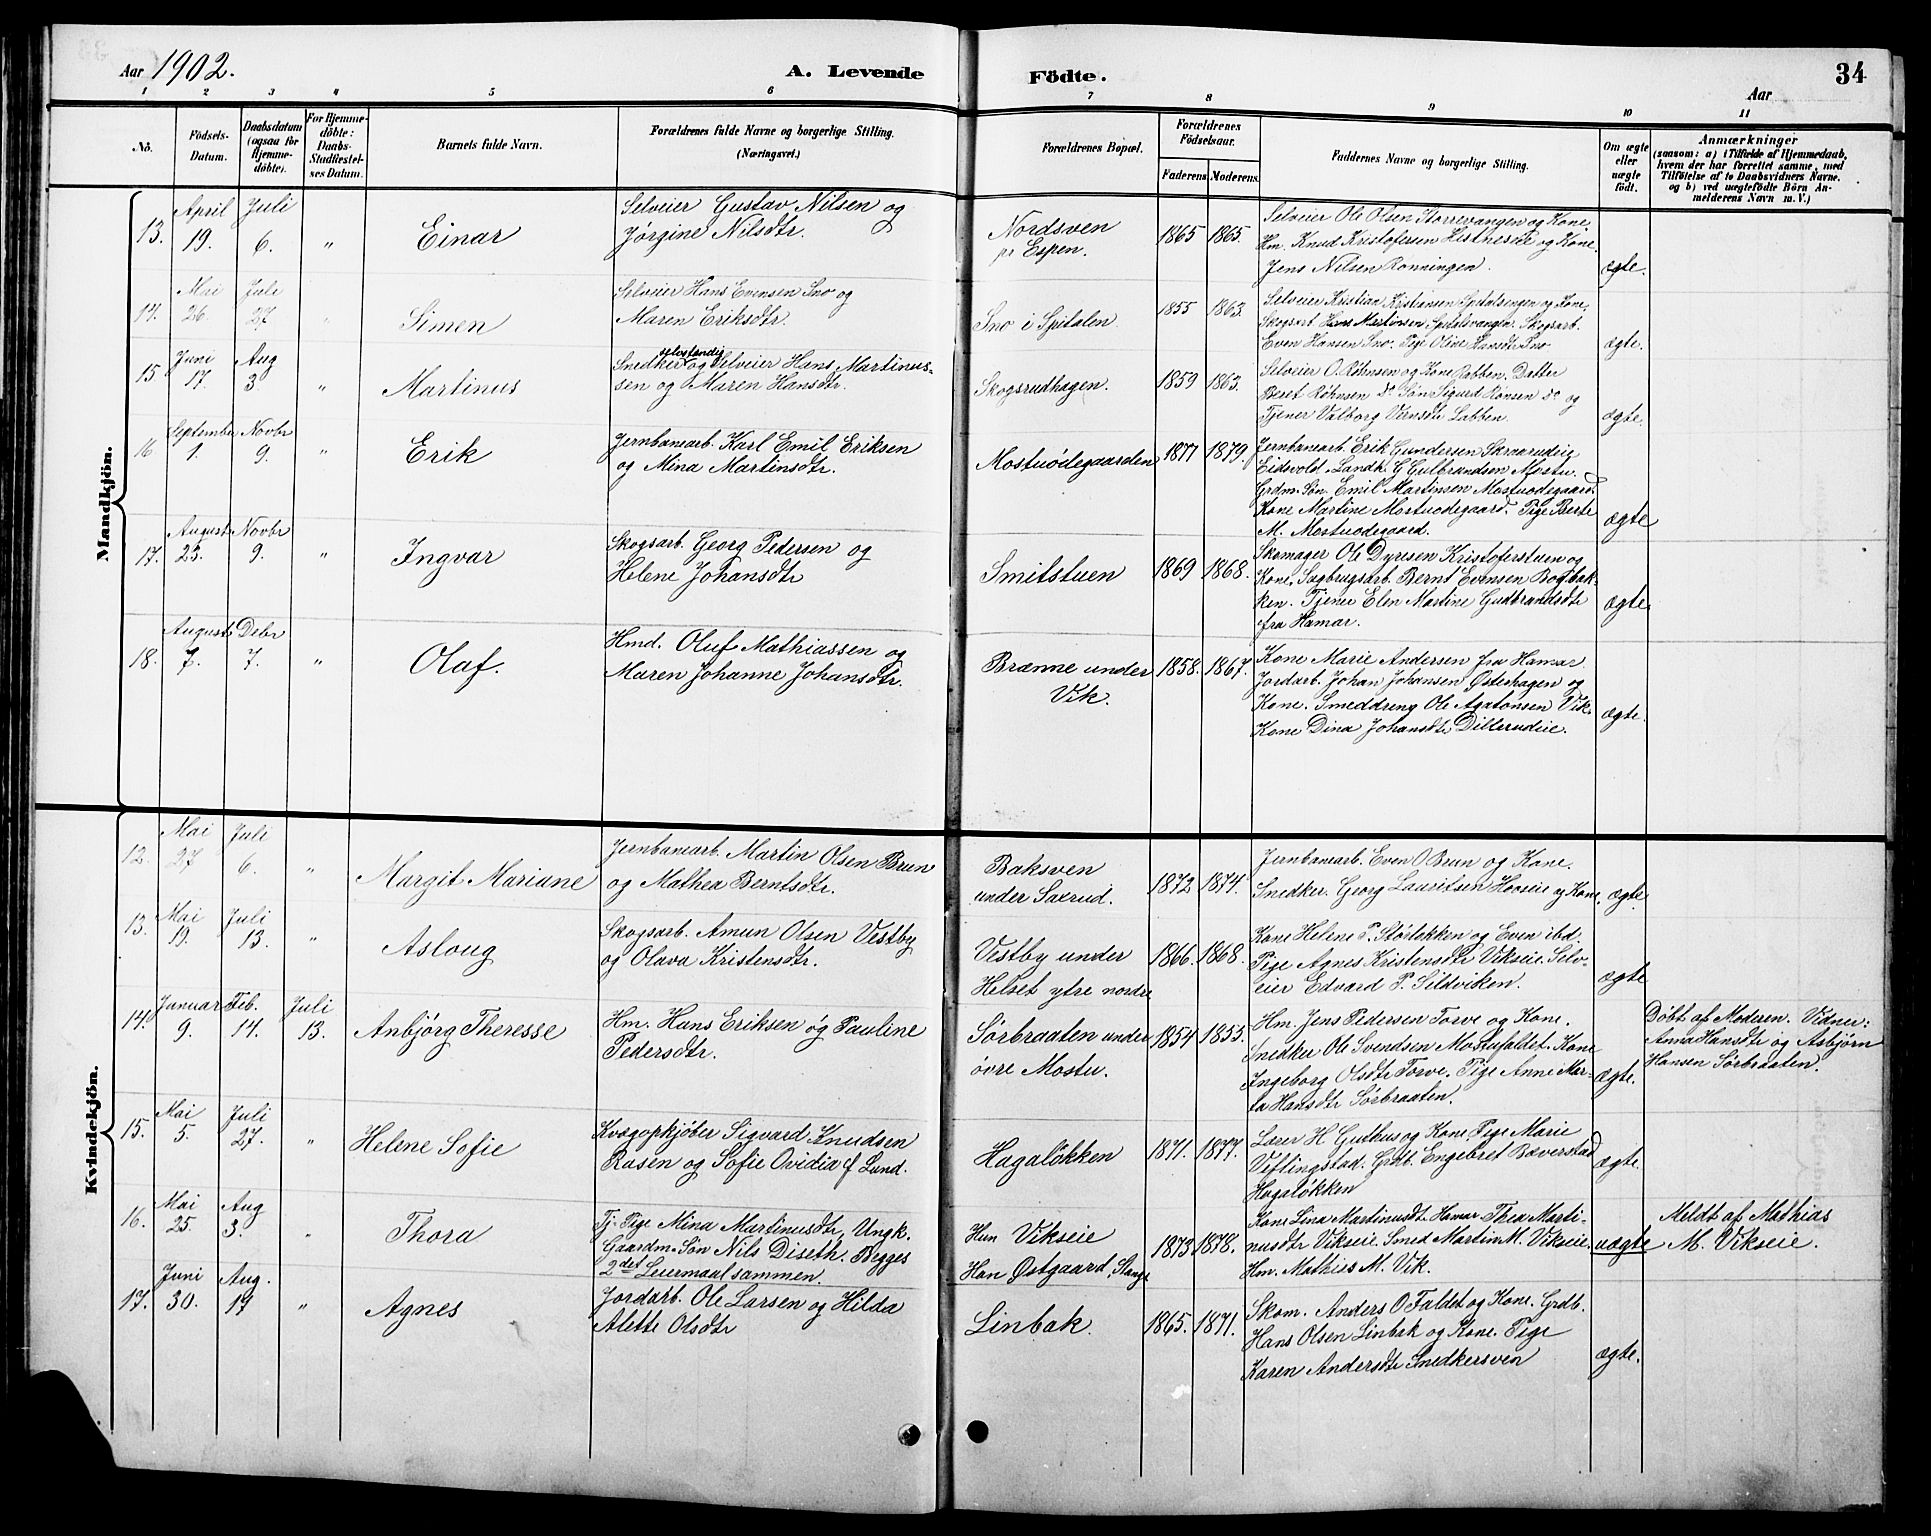 Aar 1902.
A. Levende Födte.
34
Aar
1 2 3 4 5 6 7 8 9 10 11
Nö.
Födsels-
Datum.
Daabsdatum
(ogsaa for
Hjemme-
döbte).
For Hjemme-
döbte:
Daabs-
Stadfæstel-
ses Datum.
Barnets fulde Navn.
Forældrenes fulde Navne og borgerlige Stilling.
(Næringsvei.)
Forældrenes Bopæl.
Forældrenes
Födselsaar.
Faderens. Moderens.
Faddernes Navne og borgerlige Stilling.
Om ægte
eller
uægte
födt.
Anmærkninger
(saasom: a) i Tilfælde af Hjemmedaab,
hvem der har forrettet samme, med
Tilföielse af to Daabsvidners Navne.
og b) ved uægtefödte Börn An-
melderens Navn m. V.)
Mandkjön.
13. April 19. Juli 6. " Einar
Selveier Gustav Nilsen og
Jörgine Nilsdtr.
Nordsven
pr Espen.
1865 1865.
Selveier Ole Olsen Storrevangen og Kone.
Hm. Knud Kristofersen Histneseie og Kone.
Jens Nilsen Ronningen.
ægte.
14. Mai 26. Juli 27 " Simen
Selveier Hans Evensen Sno og
Maren Eriksdtr.
Sno i Spitalen
1855 1863.
Selveier Kristian Kristiansen Spitalsengen og Kone,
Skogsarb. Hans Martinsen Spitalsvangen. Skogsarb.
Even Hansen Sno. Pige Oline Hansdtr Sno
ægte.
15. Juni 17. Aug 3. " Martinus
selvstændig
Snedker og Selveier Hans Martinus-
sen og Maren Hansdtr.
Skogsrudhagen.
1859 1863.
Selveier O. Röhnsen og Kone Rabben. Datter
Beret Röhnsen do Sön Sigurd Rönsen do og
Tjener Valborg Labben.
ægte.
16. September 1. Novbr 9. " Erik
Jernbanearb. Karl Emil Eriksen
og Mina Martinsdtr.
Mostuödegaarden
1877 1879.
Jernbanearb. Erik Gundersen
Eidsvold. Landh. G Gulbrandsen Mostu.
Grdm. Sön Emil Martinsen Mostuodegaard.
Kone Martine Mostuodegaard. Pige Berte
M. Mostuodegaard.
ægte
17. August 23. Novbr 9. " Ingvar
Skogsarb. Georg Pedersen og
Helene Johansdtr
Smitstuen
1869 1868.
Skomager Ole Dyresen Kristoferstuen og
Kone. Sagbrugsarb. Bernt Evensen Bogbak-
ken. Tjener Elen Martine Gudbrandsdtr
fra Hamar.
ægte
18. August 7. Debr 7. " Olaf.
Hmd. Oluf Mathiassen og
Maren Johanne Johansdtr.
Brænne under
Vik.
1858. 1867.
Kone Marie Andersen fra Hamar.
Jordarb. Johan Johansen Østerhagen og
Kone. Smeddreng Ole Agatonsen Vik.
Kone Dina Johansdtr Dillerudeie.
ægte.
Kvindekjön.
12. Mai 27 Juli 6. " Margit Mariane
Jernbanearb. Martin Olsen Brun
og Mathea Berntsdtr.
Baksven
under Saxrud.
1872 1874.
Jernbanearb. Even O. Brun og Kone.
Snedker. Georg Lauritsen Hoveie og Kone.
ægte.
13. Mai 19. Juli 13. " Asloug
Skogsarb. Amun Olsen Vestby
og Olava Kristensdtr.
Vestby under
Helset ytre nordre
1866. 1868.
Kone Helene P. Störlökken og Even ibd.
Pige Agnes Kristensdtr Vikseie. Selv-
eier Edvard P. Sildviken.
ægte
14. Januar 9. Feb. 14. Juli 13. Anbjörg Theresse
Hm. Hans Eriksen og Pauline
Pedersdtr.
Sörbraaten under
övre Mostu.
1854 1855.
Hm. Jens Pedersen Torve og Kone.
Snedker Ole Svendsen Mostufaldet. Kone
Ingeborg Olsdtr Torve. Pige Anne Mar-
ta Hansdtr Sörbraaten.
ægte.
Döbt af Moderen. Vidner:
Anna Hansdtr og Asbjörn
Hansen Sörbraaten.
15. Mai 5. Juli 27. " Helene Sofie
Kvægopkjöber Sigvard Knudsen
Rasen og Sofie Ovidia f. Lund.
Hagalökken
1871. 1877.
Lærer H. Guthus og Kone. Pige Marie
Veflingstad. Grdb. Engebret Bæverstad
Hagalökken
ægte.
16. Mai 25. Aug 3. " Thora
Tj. Pige Mina Martinusdtr. Ungk.
Gaardm. Sön Nils Diseth. Begges
2det Leiermaal sammen.
Hun Vikseie
Han Østgaard, Stange
1873 1878.
Kone Lina Martinusdtr Hamar Thea Marti-
nusdtr Vikseie. Smed Martin M. Vikseie.
Hm. Mathias M. Vik.
uægte
Meldt af Mathias
M. Vikseie.
17. Juni 30. Aug. 17 " Agnes
Jordarb. Ole Larsen og Hilda
Alette Olsdtr
Linbak.
1865. 1871.
Skom. Anders O Faldet og Kone. Grdb.
Hans Olsen Linbak og Kone. Pige
Karen Andersdtr Snedkersven
ægte.